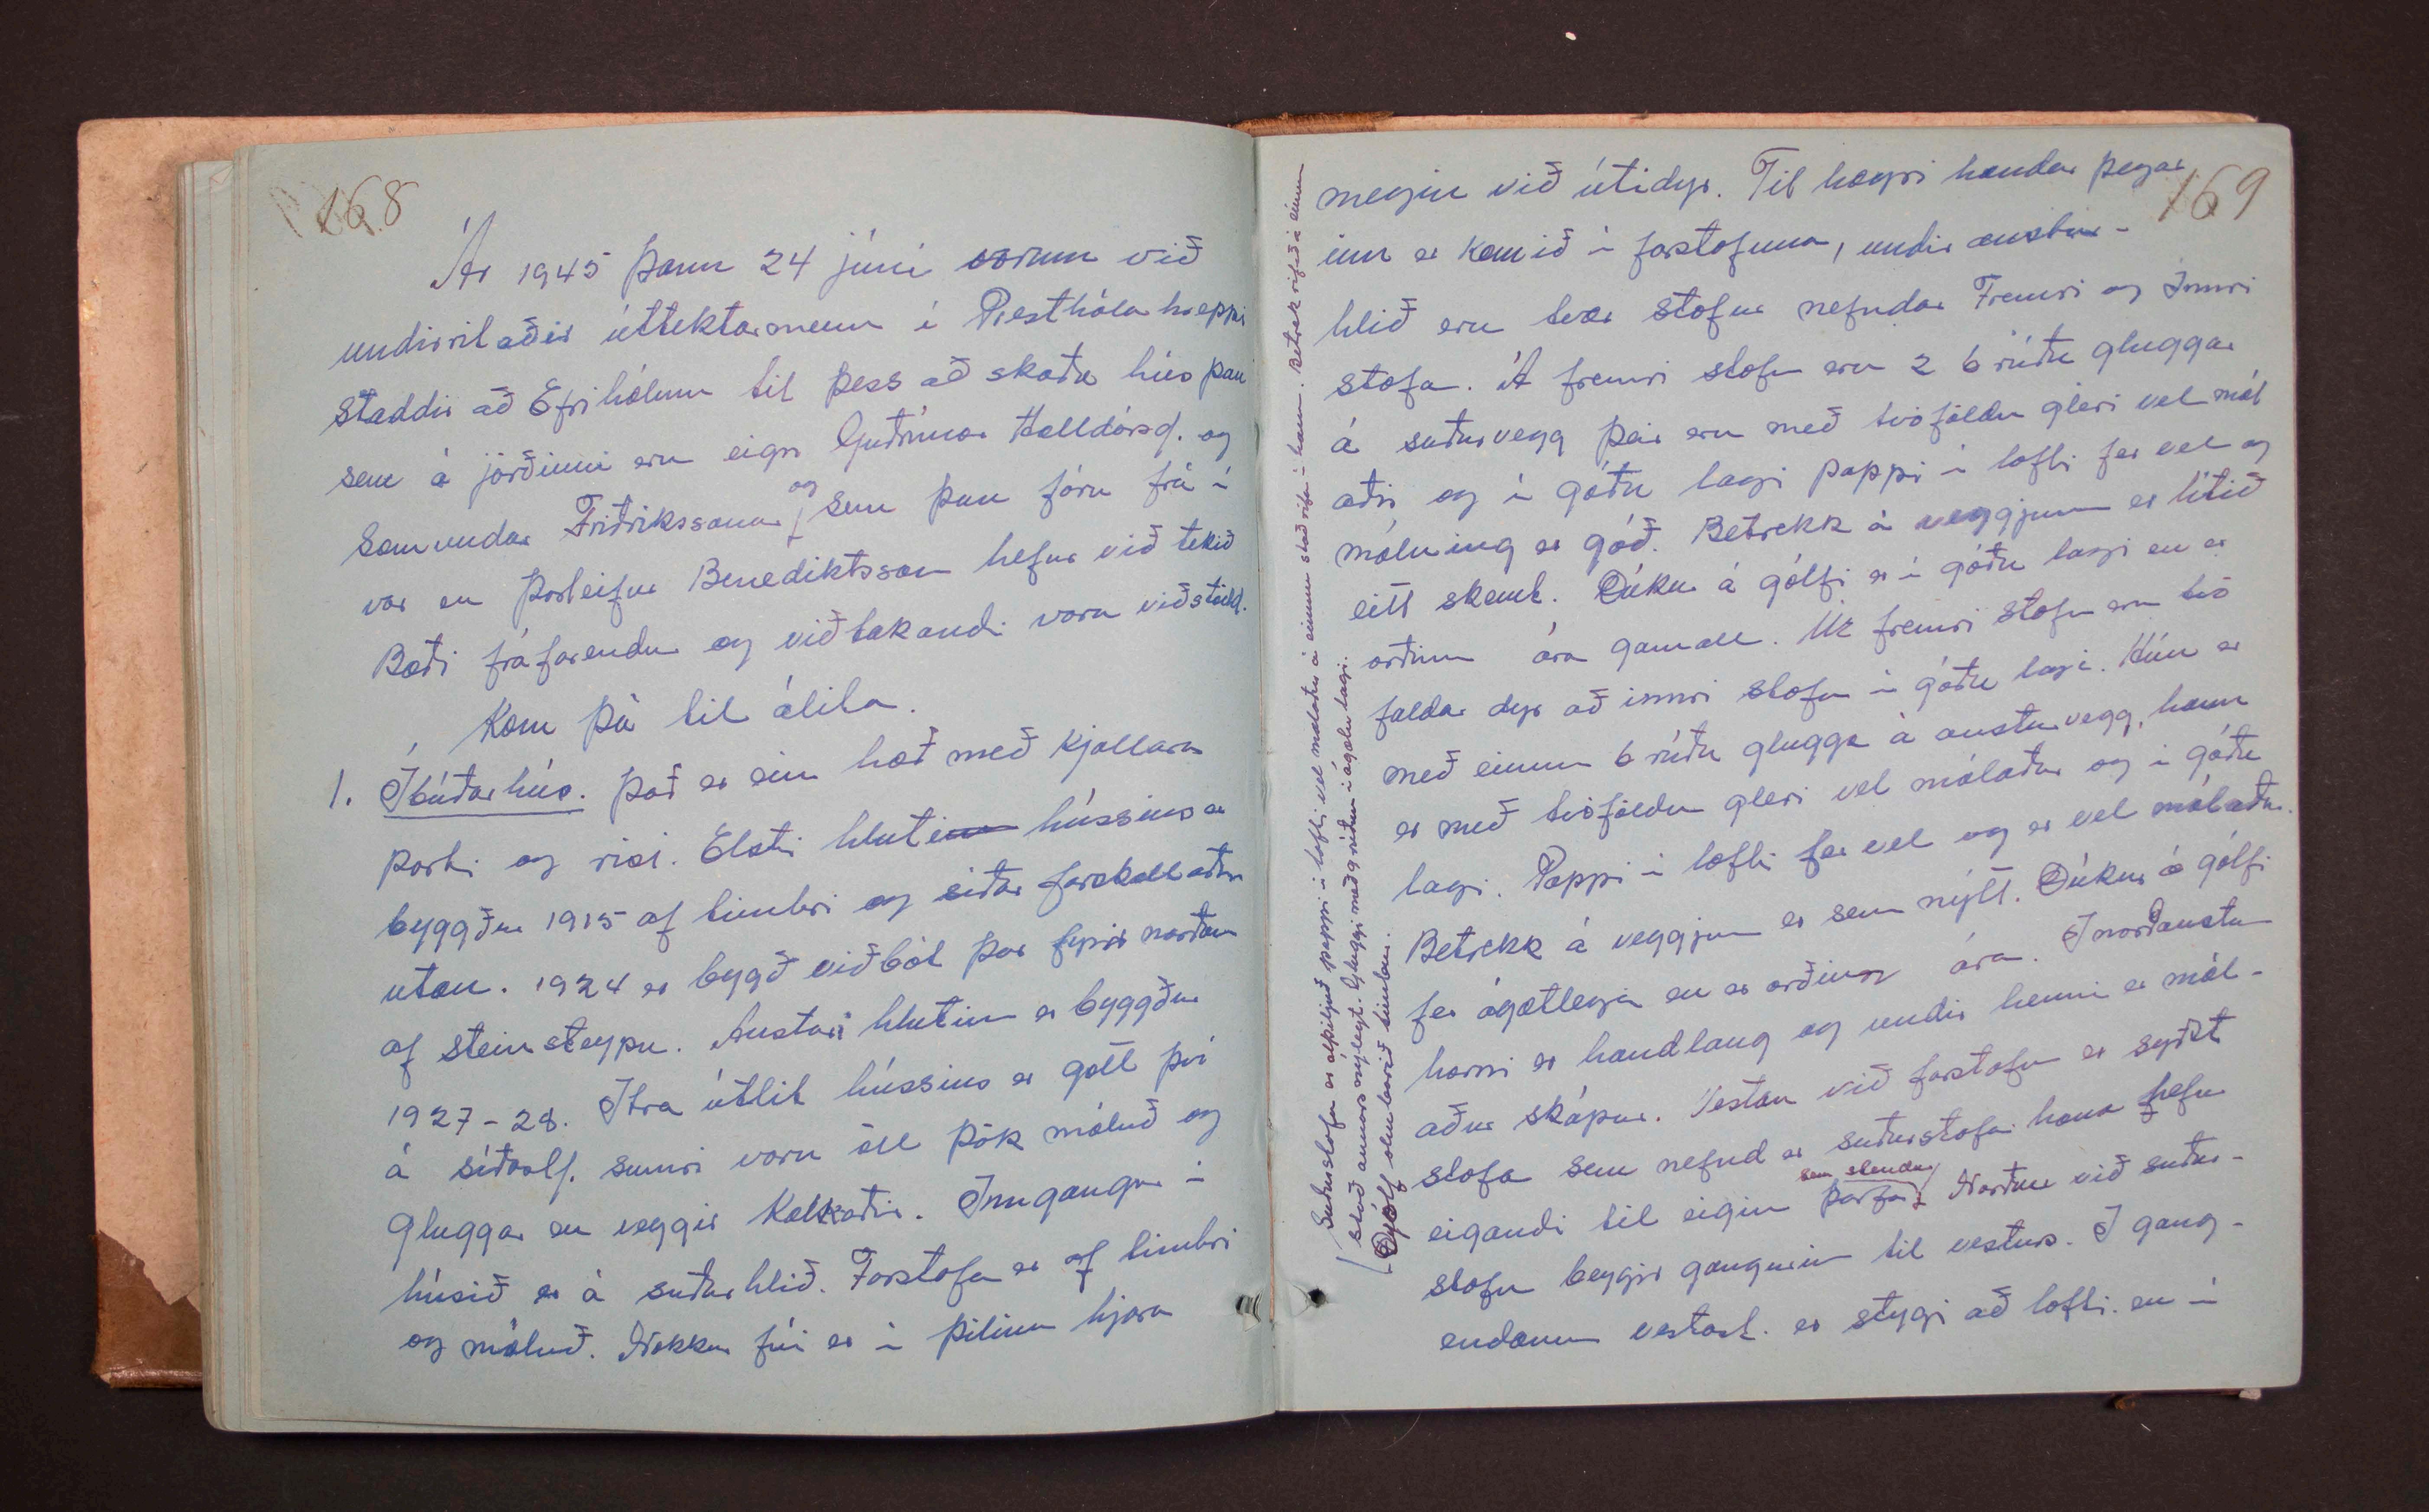 168
Ár 1945 þann 24 júní vorum við
undirritaðir úttektarmenn í Presthólahreppi
staddir að Efrihólum til þess að skoða hús þau
sem á jörðinni eru eign Guðrúnar Halldórsd. og
Sæmundar Friðrikssonar og sem þau fóru frá í
vor en Þorleifur Benediktsson hefur við tekið
Bæði fráfarendur og viðtakandi voru viðstödd.
Kom þá til álita.
1. Íbúðarhús. Það er ein hæð með kjallara
porti og risi. Elsti hluti hússins er
byggður 1915 af timbri og síðar forskallaður
utan. 1924 er bygð viðbót þar fyrir norðan
af steinsteypu. Austari hlutinn er byggður
1927-28. Ytra útlit hússins er gott því
á síðastl. sumri voru öll þök máluð og
gluggar en veggir kalkaðir. Inngangur í
húsið er á suðurhlið. Forstofa er af timbri
og máluð. Nokkur fúi er í þilinu hjara
169
megin við útidyr. Til hægri handar þegar
inn er komið í forstofuna, undir austur-
hlið eru tvær stofur nefndar Fremri og Innri
stofa. Á fremri stofu eru 2 6 rúðu gluggar
á suðurvegg þeir eru með tvöföldu gleri vel mál
aðir og í góðu lagi pappi í lofti fer vel og
málning er góð. Betrekk á veggjum er lítið
eitt skemt. Dúkur á gólfi er í góðu lagi en er
orðinn ára gamall. Úr fremri stofu eru tvö
faldar dyr að innri stofu í góðu lagi. Hún er
með einum 6 rúðu glugga á austurvegg, hann
er með tvöföldu gleri vel málaður og í góðu
lagi. Pappi í lofti fer vel og er vel málaður.
Betrekk á veggjum er sem nýtt. Dúkur á gólfi
fer ágætlega en er orðinn ára. Í norðaustur
horni er handlaug og undir henni er mál-
aður skápur. Vestan við forstofu er syðst
stofa sem nefnd er suðurstofa hana hefur
eigandi til eigin þarfa sem stendur Norður við suður-
stofu beygir gangurinn til vesturs. Í gang-
endanum vestast. er stygi að lofti. en í
Suðurstofa er alþiljuð pappi í lofti vel málaður á einum stað rifa í hann. Betrek rifið á einum
stað annars nýlegt. Gluggi með 9 rúðum í ágætu lagi.
Gólf olíuborið timbur.